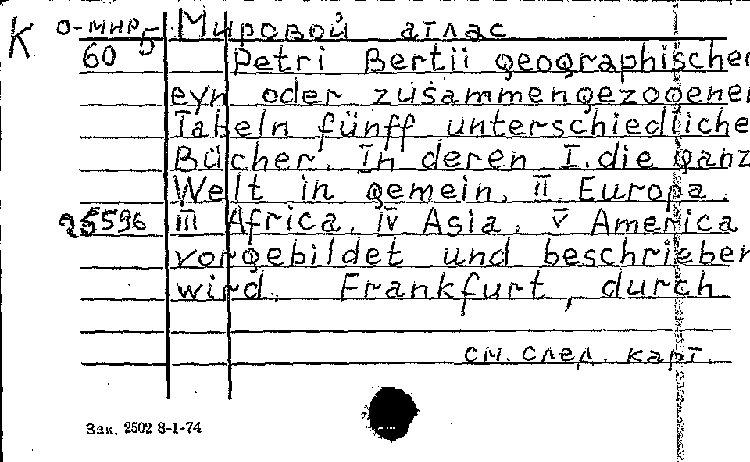 К О-МИР 5 Мировой атлас
60 Petri Bertii geographischer
eyn oder zusammengezogener
Tabeln fünff unterschiedliche
Bücher. In deren I. die ganz
Welt in gemein, II Europa.
III Africa, IV Asia, V America
vorgebildet und beschrieben
wird. Frankfurt, durch
см. след. карт.
Зак. 2502 8-1-74